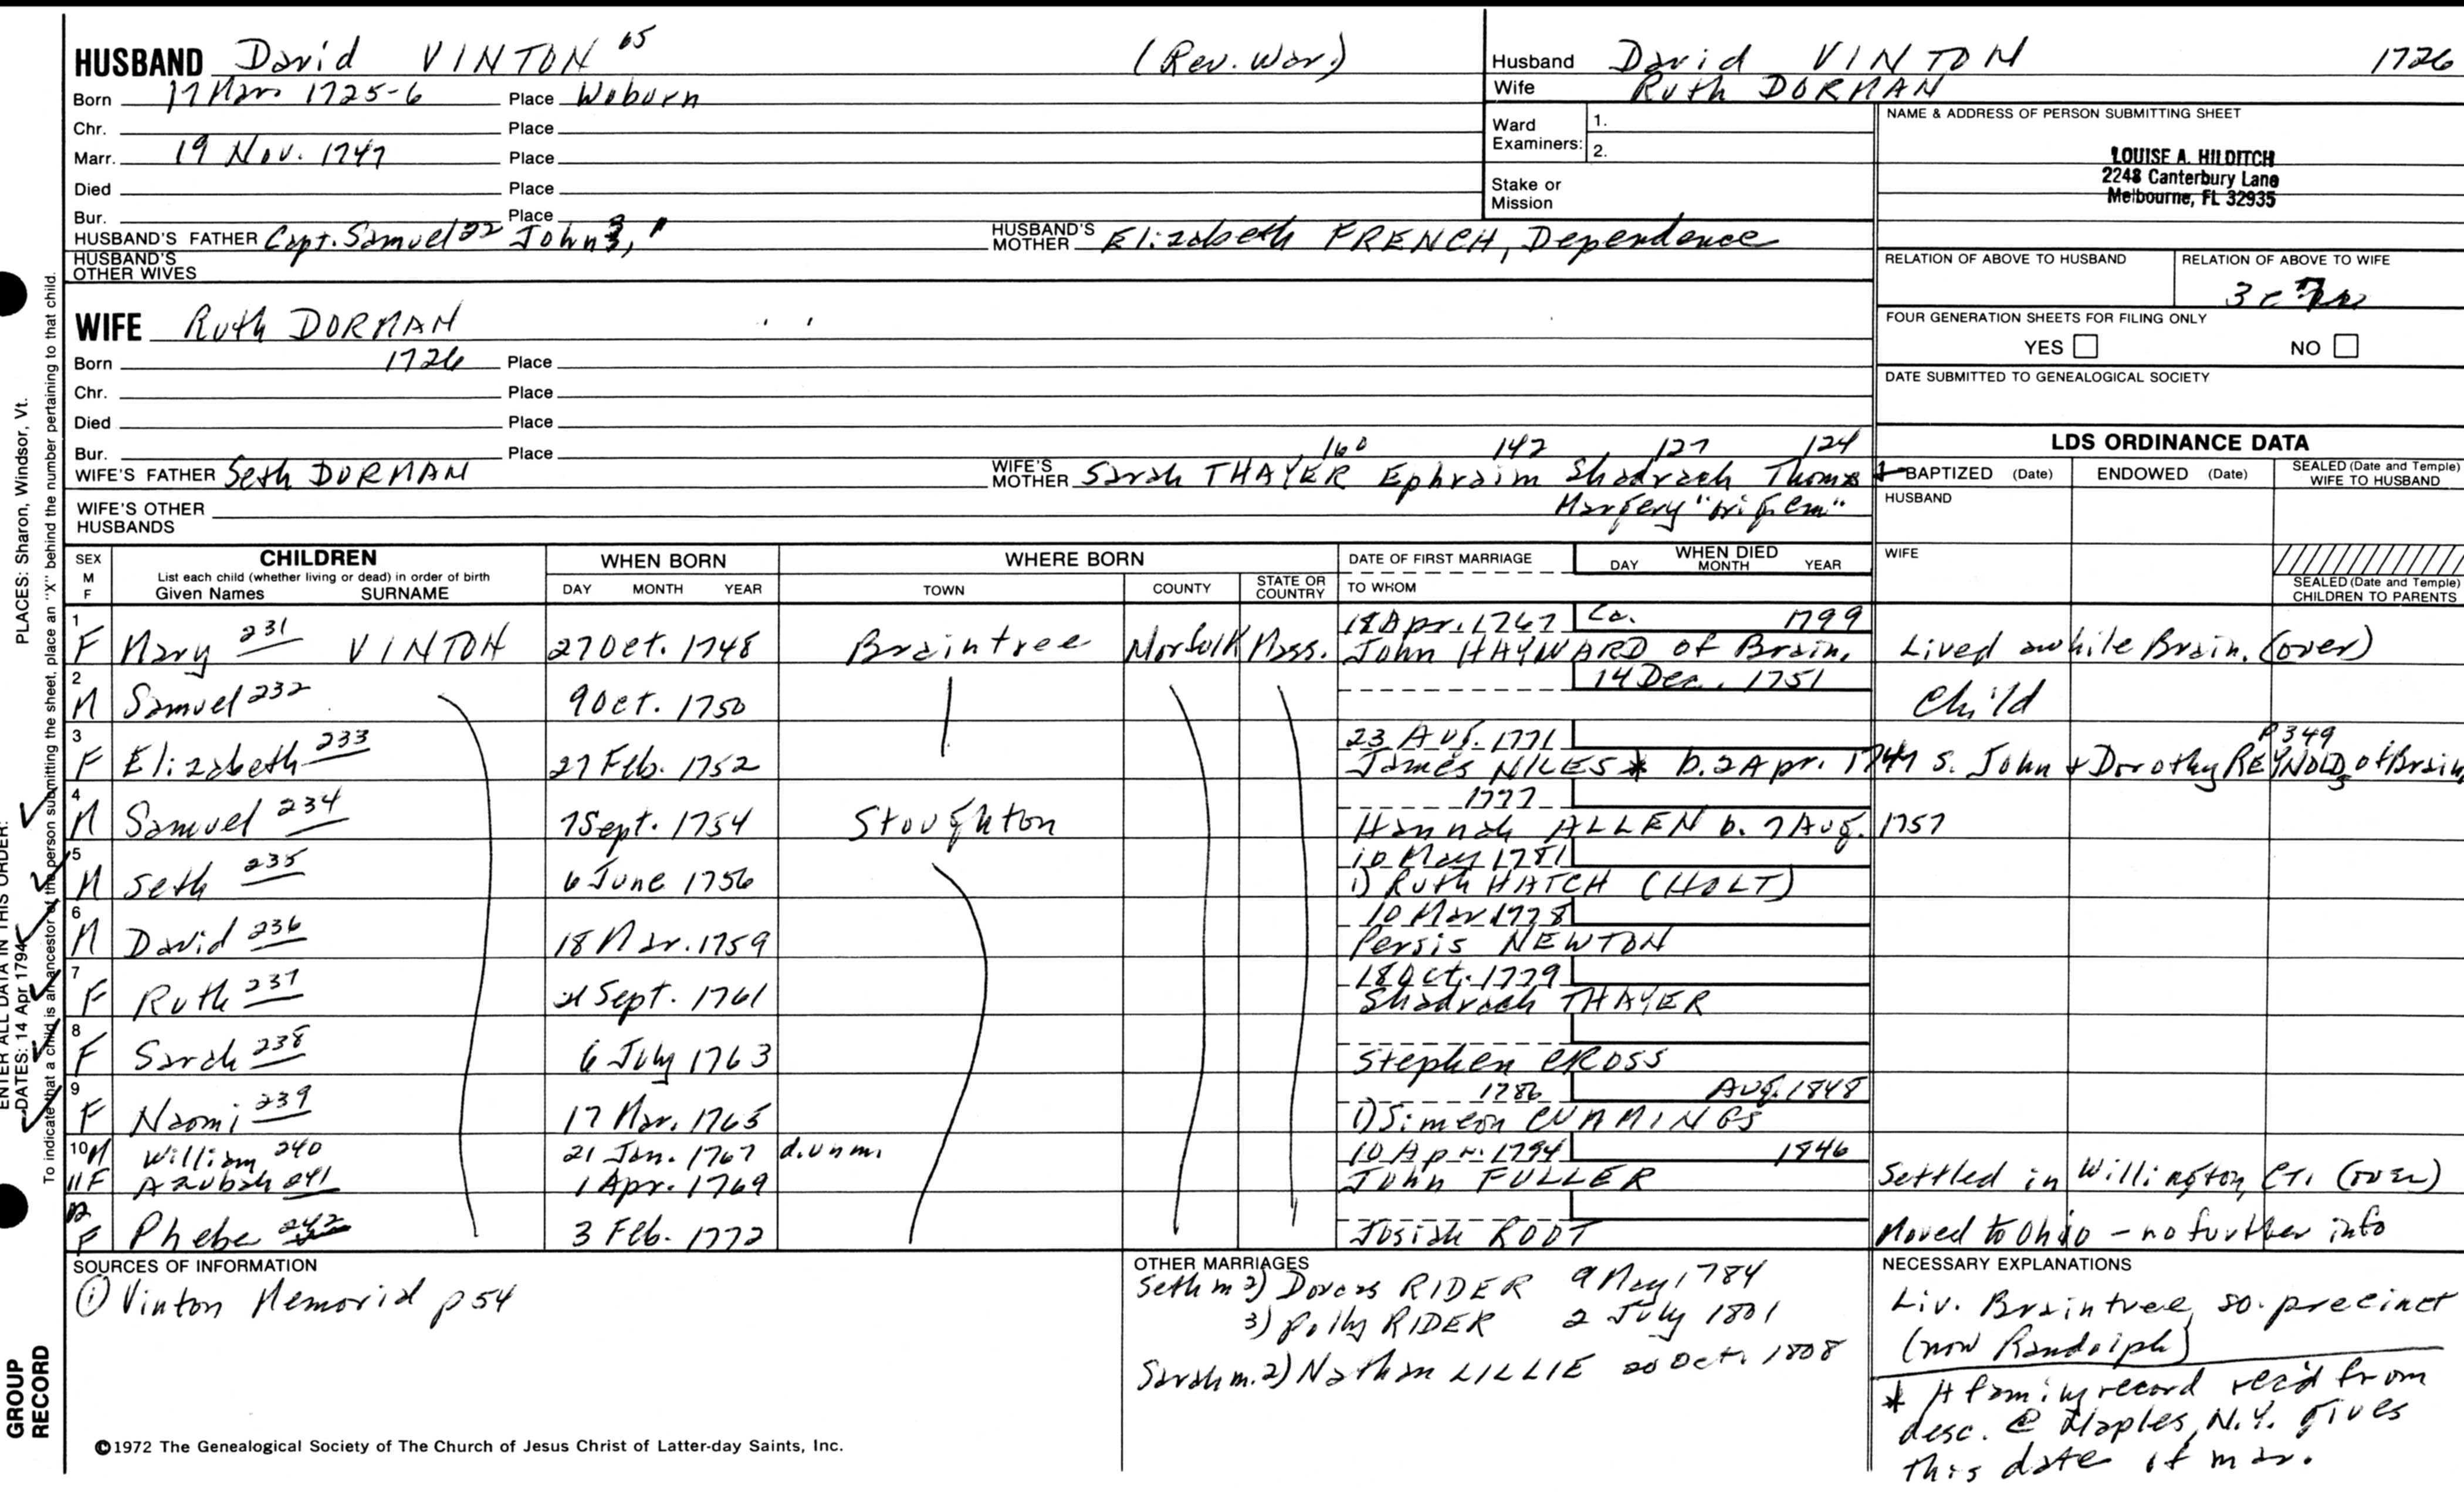 HUSBAND David VINTON 65 (Rev. War.)
Born 17 Mar. 1725-6 Place Woburn
Chr. Place
Marr. 19 Nov. 1747 Place
Died Place
Bur. Place
HUSBAND'S FATHER Capt. Samuel 22 John 3, 1
HUSBAND'S MOTHER Elizabeth FRENCH, Dependence
HUSBAND'S OTHER WIVES
Husband David VINTON 1726
Wife Ruth DORMAN
Ward Examiners: 1.
2.
Stake or Mission
NAME & ADDRESS OF PERSON SUBMITTING SHEET
LOUISE A. HILDITCH
2248 Canterbury Lane
Melbourne, FL 32935
RELATION OF ABOVE TO HUSBAND RELATION OF ABOVE TO WIFE
3 c
FOUR GENERATION SHEETS FOR FILING ONLY
YES NO
DATE SUBMITTED TO GENEALOGICAL SOCIETY
WIFE Ruth DORMAN
Born 1726 Place
Chr. Place
Died Place
Bur. Place
160 142 127 124
WIFE'S FATHER Seth DORMAN
WIFE'S MOTHER Sarah THAYER Ephraim Shadrach Thomas 1
Margery
WIFE'S OTHER HUSBANDS
LDS ORDINANCE DATA
BAPTIZED (Date) ENDOWED (Date) SEALED (Date and Temple) WIFE TO HUSBAND
HUSBAND
WIFE
SEALED (Date and Temple) CHILDREN TO PARENTS
SEX M F
CHILDREN
List each child (whether living or dead) in order of birth
Given Names SURNAME
WHEN BORN
DAY MONTH YEAR
WHERE BORN
TOWN COUNTY STATE OR COUNTRY
DATE OF FIRST MARRIAGE
TO WHOM
WHEN DIED
DAY MONTH YEAR
1 18 Apr. 1767 Ca. 1799
F Mary 231 VINTON 27 Oct. 1748 Braintree Norfolk Mass. John HAYWARD of Brain. Lived awhile Brain. (over)
2 14 Dec. 1751
M Samuel 232 9 Oct. 1750 Child
3 23 Aug. 1771 P 349
F Elizabeth 233 27 Feb. 1752 James NILES * b. 2 Apr. 1747 s. John & Dorothy REYNOLDS of Brain
4 1777
M Samuel 234 7 Sept. 1754 Stoughton Hannah ALLEN b. 7 Aug. 1757
5 10 May 1781
M Seth 235 6 June 1756 1) Ruth HATCH (HOLT)
6 10 Mar 1778
M David 236 18 Mar. 1759 Persis NEWTON
7 18 Oct. 1779
F Ruth 237 21 Sept. 1761 Shadrach THAYER
8
F Sarah 238 6 July 1763 Stephen CROSS
9 1786 Aug. 1848
F Naomi 239 17 Mar. 1765 1) Simeon CUMMINGS
10 M William 240 21 Jan. 1767 d. unm. 10 Apr. 1794 1846
11 F Azubah 241 1 Apr. 1769 John FULLER Settled in Willington, CT. (over)
12
F Phebe 242 3 Feb. 1772 Josiah ROOT Moved to Ohio - no further info
SOURCES OF INFORMATION
① Vinton Memorial p 54
OTHER MARRIAGES
Seth m 2) Dorcas RIDER 9 May 1784
3) Polly RIDER 2 July 1801
Sarah m. 2) Nathan LILLIE 20 Oct. 1808
NECESSARY EXPLANATIONS
Liv. Braintree, so. precinct
(now Randolph)
* A family record rec'd from
desc. @ Naples, N.Y. gives
this date of mar.
©1972 The Genealogical Society of The Church of Jesus Christ of Latter-day Saints, Inc.
GROUP RECORD
ENTER ALL DATA IN THIS ORDER:
DATES: 14 Apr 1794
PLACES: Sharon, Windsor, Vt.
To indicate that a child is an ancestor of the person submitting the sheet, place an "X" behind the number pertaining to that child.